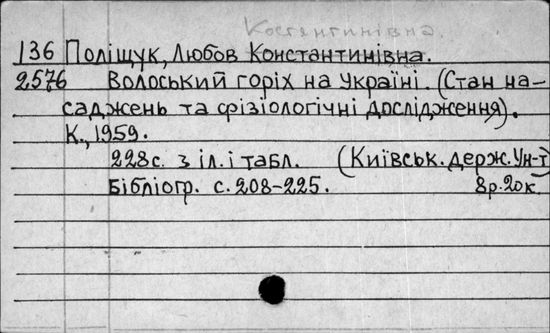 Костентинівна
136 Поліщук, Любов Константинівна.
2576 Волоський горіх на Україні. (Стан на-
саджень та фізіологічні дослідження).
К., 1959.
228с. з іл. і табл. (Київськ. держ. Ун-т)
Бібліогр. с. 208-225. 8р. 20к.